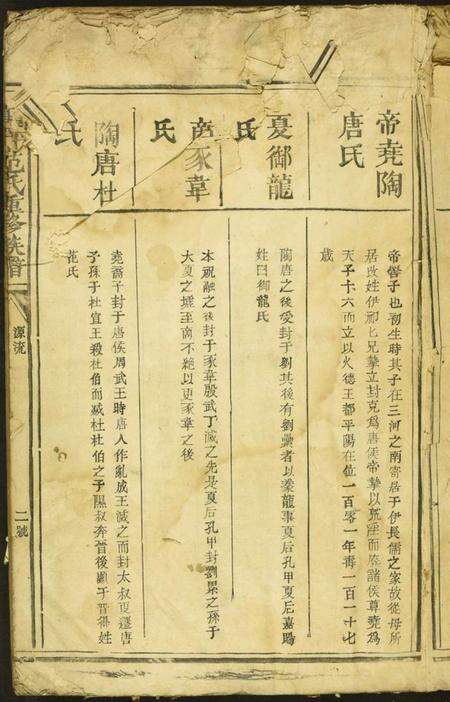 帝堯陶
唐氏
帝嚳子也初生時其子在三河之南寄居于伊長儒之家故從母所
居改姓伊祁氏兄摯立封堯為唐侯帝摯以荒淫而廢諸侯尊堯為
天子十六而立以火德王都平陽在位一百零一年壽一百一十七
歲
夏御龍
氏
陶唐之後受封于劉其後有劉纍者以豢龍事夏后孔甲夏后嘉賜
姓曰御龍氏
豕韋
氏
本祝融之後封于豕韋殷武丁滅之先是夏后孔甲封劉累之孫于
大夏之墟至商不絕以更豕韋之後
陶唐杜
氏
堯裔子封于唐侯周武王時唐人作亂成王滅之而封太叔更遷唐
子孫于杜宣王殺杜伯而滅杜杜伯之子隰叔奔晉後顯于晉得姓
范氏
氏重修族譜
源流
二號